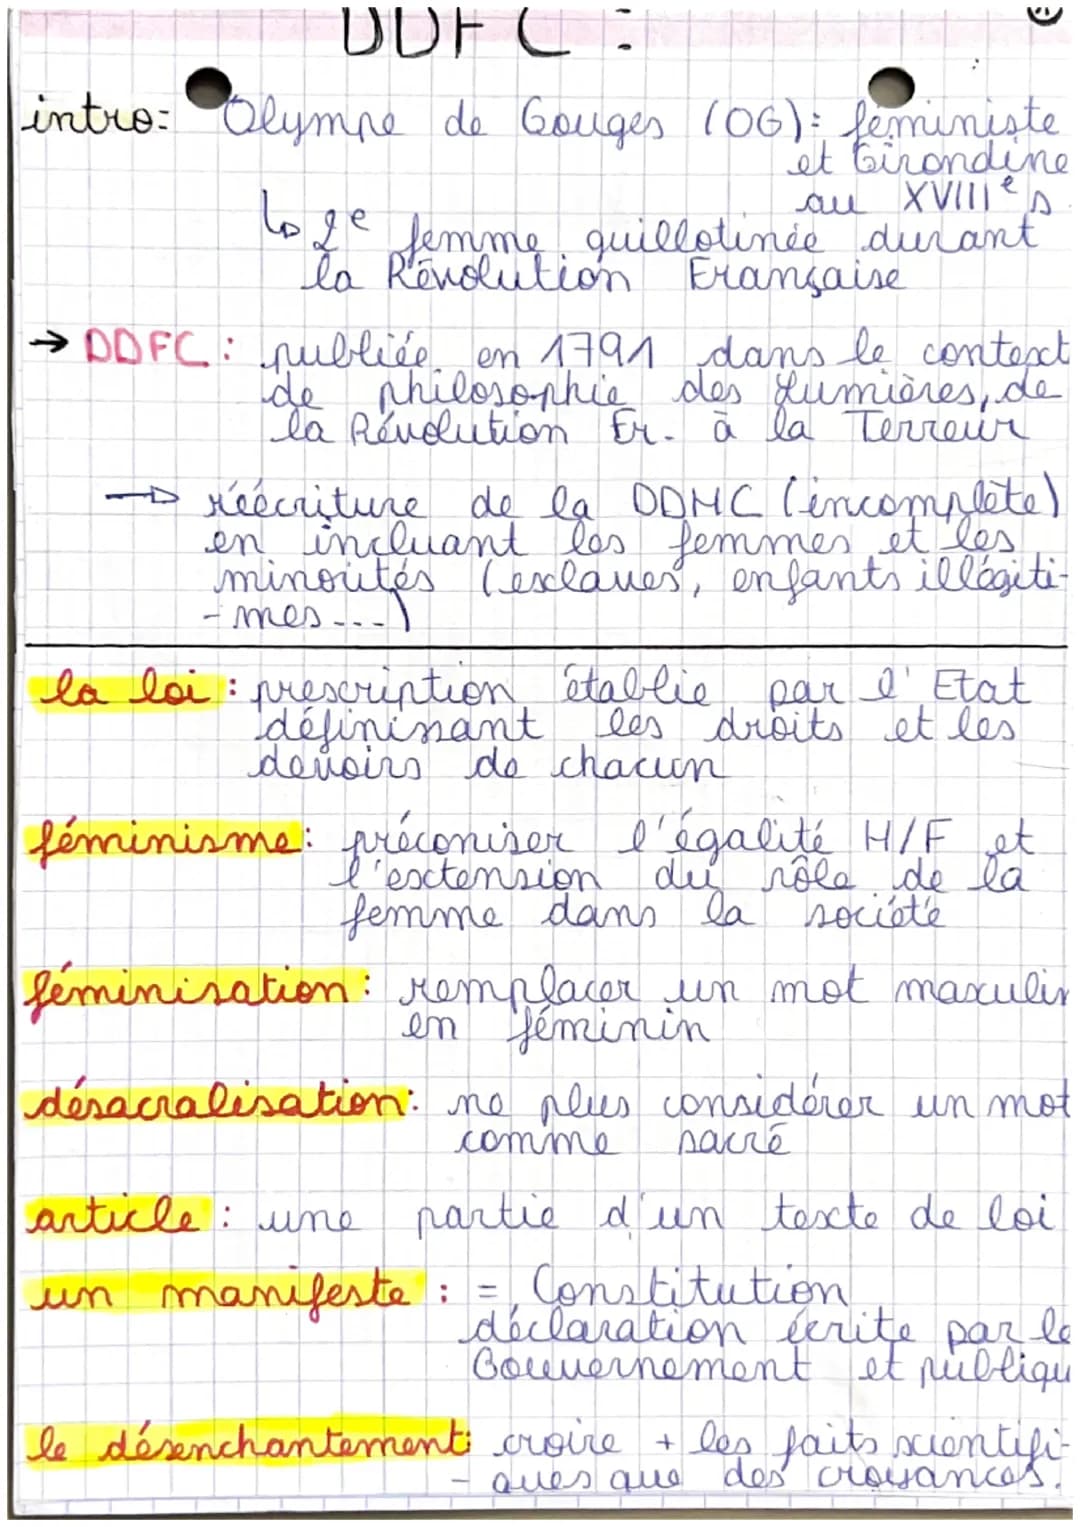 DDFC :
intro: Olympe de Gouges (OG): féministe
et Girondine
au XVIIIe s.
↳ 2e femme guillotinée durant
la Révolution Française
→ DDFC : publiée en 1791 dans le context
de philosophie des Lumières, de
la Révolution Fr. à la Terreur
→ réécriture de la DDHC (incomplète)
en incluant les femmes et les
minorités (esclaves, enfants illégiti-
-mes...)
la loi : prescription établie par l'Etat
définissant les droits et les
devoirs de chacun
féminisme : préconiser l'égalité H/F et
l'extension du rôle de la
femme dans la société
féminisation : remplacer un mot masculin
en féminin
désacralisation : ne plus considérer un mot
comme sacré
article : une partie d'un texte de loi
un manifeste : = Constitution
déclaration écrite par le
Gouvernement et publiqu
le désenchantement : croire + les faits scientifi-
-ques que des croyances.